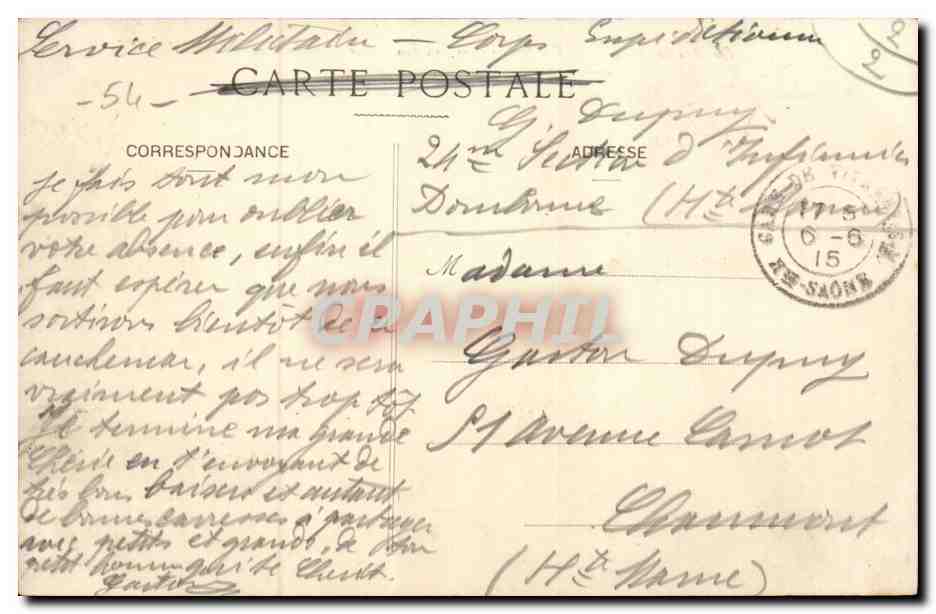 Service Militaire — Corps Expéditionnre
CARTE POSTALE
- 54 -
22
G. Dupuy
CORRESPONDANCE
ADRESSE
24me Section d'Infirmiers
Dombonne (Hte Marne)
GARE DE VITREY
17-5
6-6
15
HTE-SAÔNE
Je fais tout mon
possible pour oublier
votre absence, enfin il
faut espérer que nous
sortirons bientôt de ce
cauchemar, il ne sera
vraiment pas trop tôt.
Je termine ma grande
Chérie en t'envoyant de
très bons baisers et autant
de bonnes caresses à partager
avec petits et grands, de ton
petit homme qui te Chérit.
Gaston
Madame
Gaston Dupuy
51 Avenue Carnot
Chaumont
(Hte Marne)
CPAPHIL